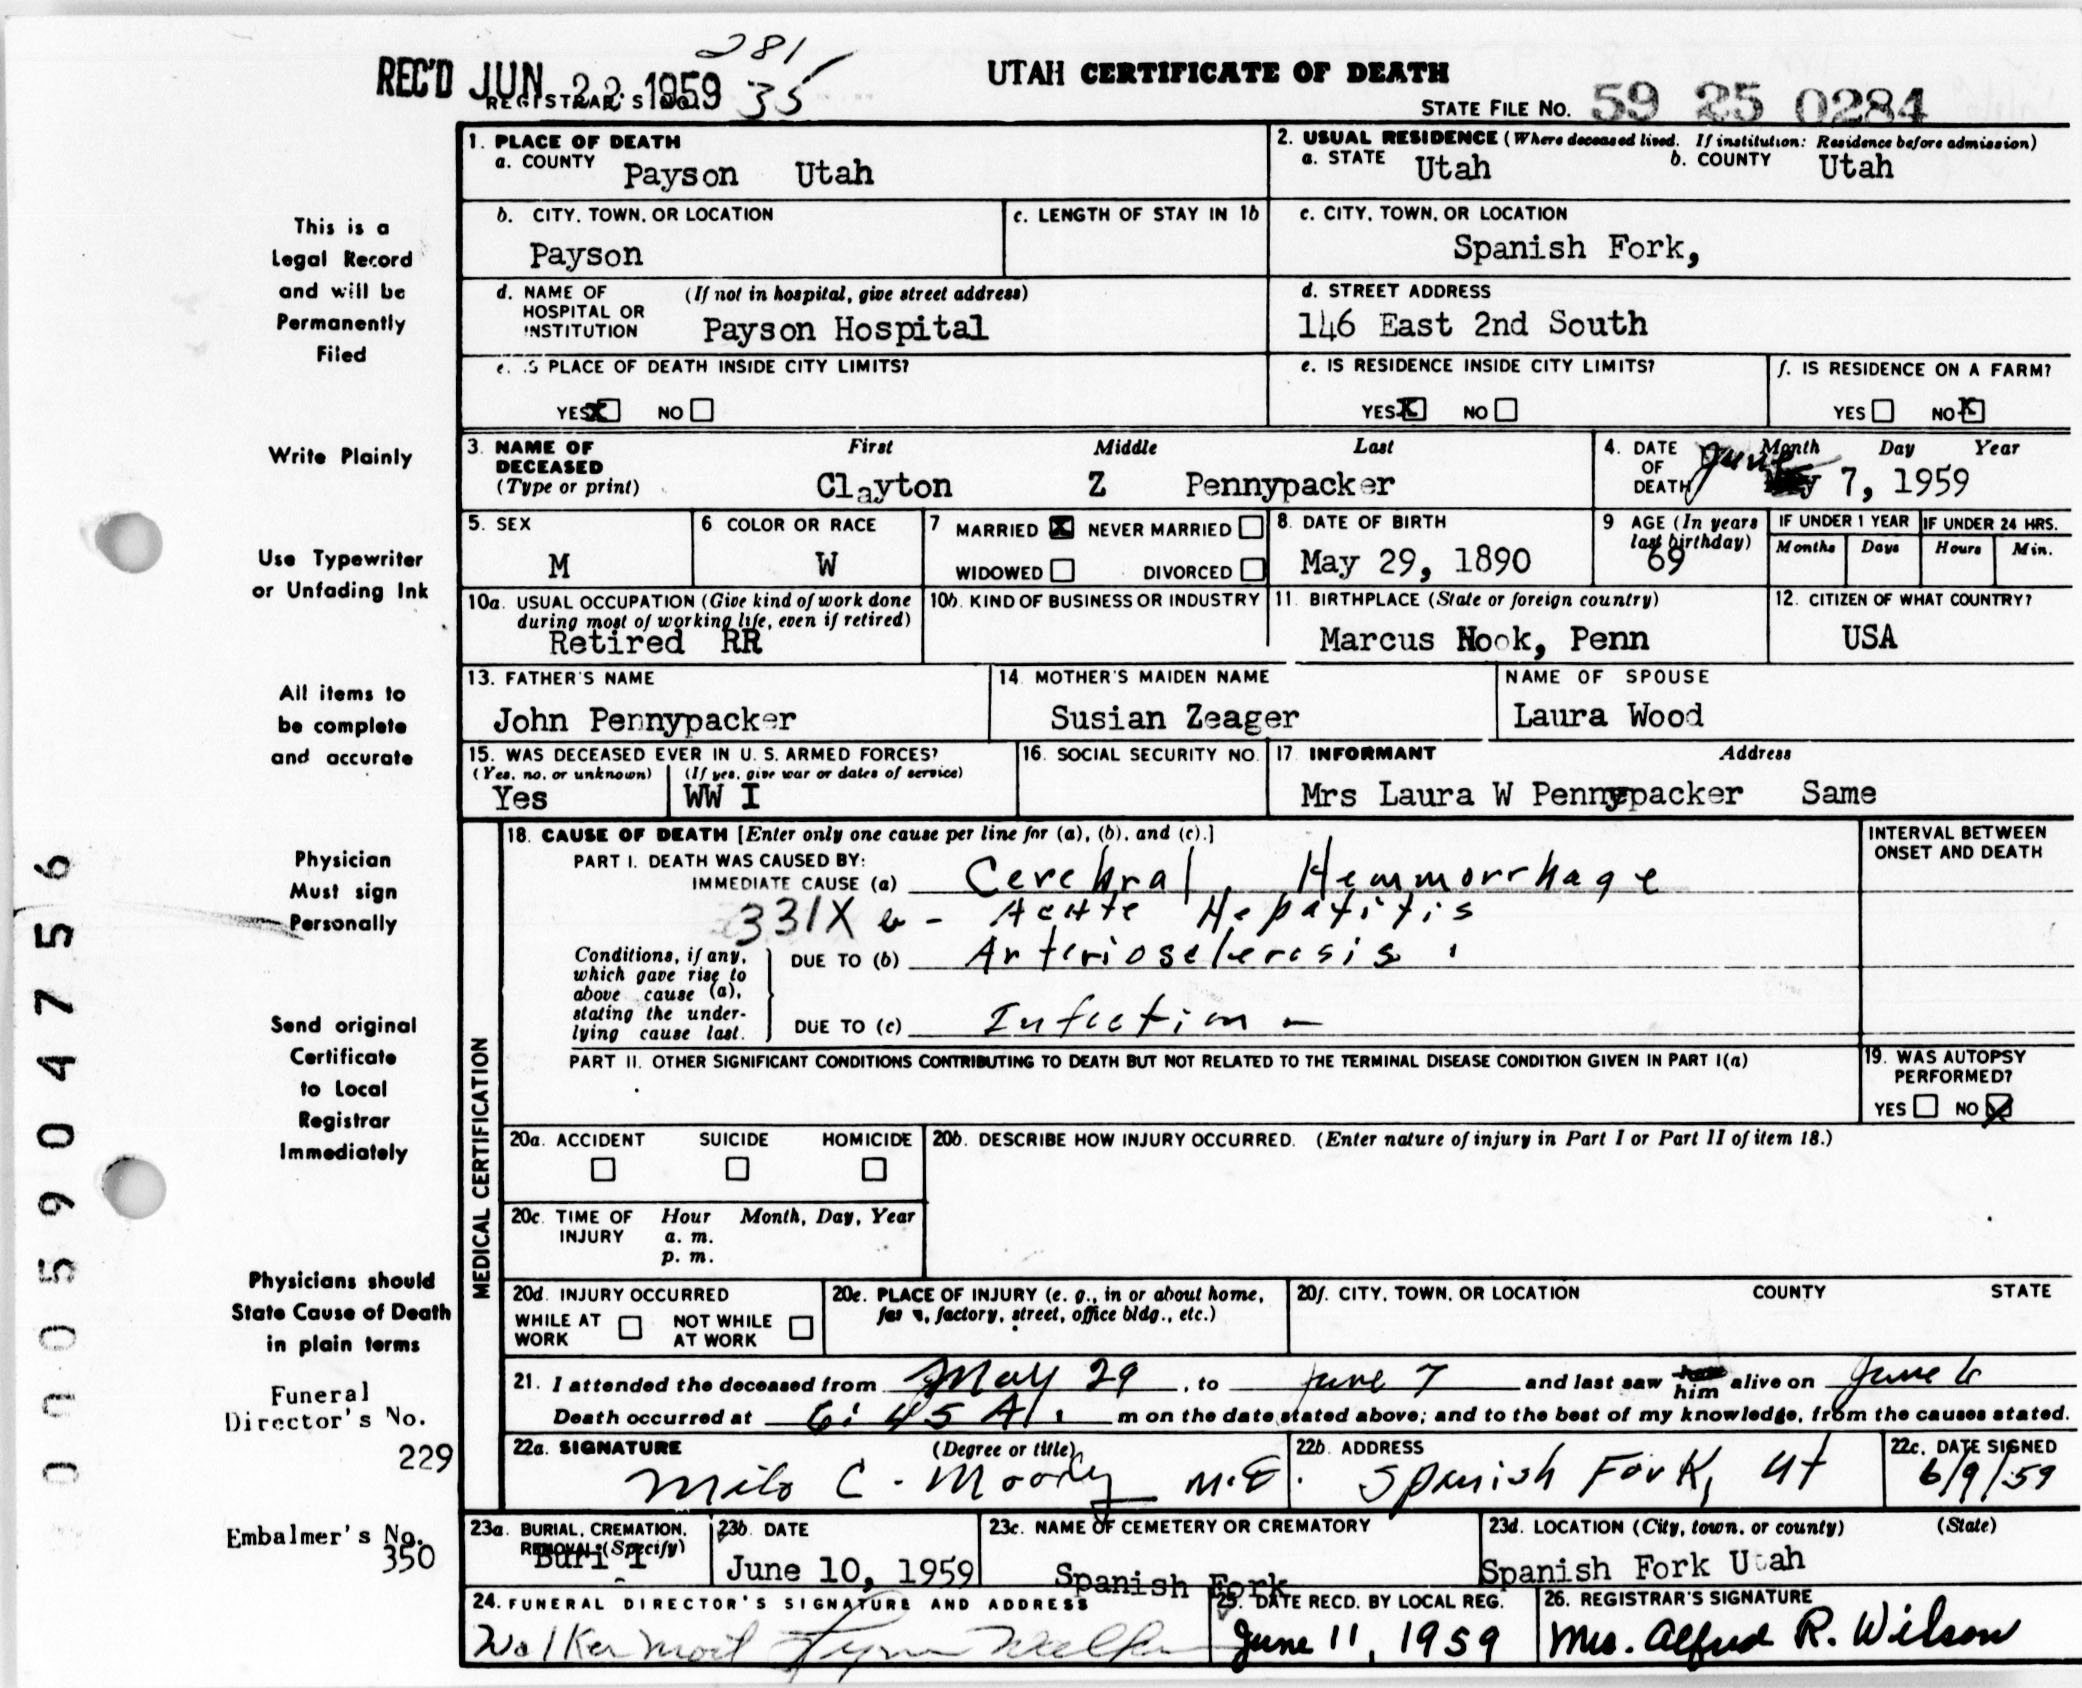 281
REC'D JUN 22 1959 35
REGISTRAR'S NO.
UTAH CERTIFICATE OF DEATH
STATE FILE NO. 59 25 0284
This is a
Legal Record
and will be
Permanently
Filed
Write Plainly
Use Typewriter
or Unfading Ink
All items to
be complete
and accurate
Physician
Must sign
Personally
Send original
Certificate
to Local
Registrar
Immediately
Physicians should
State Cause of Death
in plain terms
Funeral
Director's No.
229
Embalmer's No.
350
0005904756
1. PLACE OF DEATH
a. COUNTY Payson Utah
2. USUAL RESIDENCE (Where deceased lived. If institution: Residence before admission)
a. STATE Utah b. COUNTY Utah
b. CITY, TOWN, OR LOCATION
Payson
c. LENGTH OF STAY IN 1b
c. CITY, TOWN, OR LOCATION
Spanish Fork,
d. NAME OF (If not in hospital, give street address)
HOSPITAL OR
INSTITUTION Payson Hospital
d. STREET ADDRESS
146 East 2nd South
e. IS PLACE OF DEATH INSIDE CITY LIMITS?
YES X NO
e. IS RESIDENCE INSIDE CITY LIMITS?
YES X NO
f. IS RESIDENCE ON A FARM?
YES NO X
3. NAME OF First Middle Last
DECEASED
(Type or print) Clayton Z Pennypacker
4. DATE Month Day Year
OF June
DEATH 7, 1959
5. SEX
M
6 COLOR OR RACE
W
7 MARRIED X NEVER MARRIED
WIDOWED DIVORCED
8. DATE OF BIRTH
May 29, 1890
9 AGE (In years
last birthday)
69
IF UNDER 1 YEAR IF UNDER 24 HRS.
Months Days Hours Min.
10a. USUAL OCCUPATION (Give kind of work done
during most of working life, even if retired)
Retired RR
10b. KIND OF BUSINESS OR INDUSTRY
11. BIRTHPLACE (State or foreign country)
Marcus Hook, Penn
12. CITIZEN OF WHAT COUNTRY?
USA
13. FATHER'S NAME
John Pennypacker
14. MOTHER'S MAIDEN NAME
Susian Zeager
NAME OF SPOUSE
Laura Wood
15. WAS DECEASED EVER IN U. S. ARMED FORCES?
(Yes, no, or unknown) (If yes, give war or dates of service)
Yes WW I
16. SOCIAL SECURITY NO.
17. INFORMANT Address
Mrs Laura W Pennypacker Same
MEDICAL CERTIFICATION
18. CAUSE OF DEATH [Enter only one cause per line for (a), (b), and (c).]
INTERVAL BETWEEN
ONSET AND DEATH
PART I. DEATH WAS CAUSED BY:
IMMEDIATE CAUSE (a) Cerebral Hemmorrhage
331X b - Acute Hepatitis
Conditions, if any,
which gave rise to
above cause (a),
stating the under-
lying cause last.
DUE TO (b) Arteriosclerosis
DUE TO (c) Infection -
PART II. OTHER SIGNIFICANT CONDITIONS CONTRIBUTING TO DEATH BUT NOT RELATED TO THE TERMINAL DISEASE CONDITION GIVEN IN PART I(a)
19. WAS AUTOPSY
PERFORMED?
YES NO X
20a. ACCIDENT SUICIDE HOMICIDE
20b. DESCRIBE HOW INJURY OCCURRED. (Enter nature of injury in Part I or Part II of item 18.)
20c. TIME OF Hour Month, Day, Year
INJURY a. m.
p. m.
20d. INJURY OCCURRED
WHILE AT NOT WHILE
WORK AT WORK
20e. PLACE OF INJURY (e. g., in or about home,
farm, factory, street, office bldg., etc.)
20f. CITY, TOWN, OR LOCATION COUNTY STATE
21. I attended the deceased from May 29, to June 7 and last saw him alive on June 6
Death occurred at 6:45 A. m on the date stated above; and to the best of my knowledge, from the causes stated.
22a. SIGNATURE (Degree or title)
Milo C. Moody M.D.
22b. ADDRESS
Spanish Fork, Ut
22c. DATE SIGNED
6/9/59
23a. BURIAL, CREMATION,
REMOVAL (Specify)
Buri l
23b. DATE
June 10, 1959
23c. NAME OF CEMETERY OR CREMATORY
Spanish Fork
23d. LOCATION (City, town, or county) (State)
Spanish Fork Utah
24. FUNERAL DIRECTOR'S SIGNATURE AND ADDRESS
Walker
25. DATE RECD. BY LOCAL REG.
June 11, 1959
26. REGISTRAR'S SIGNATURE
Mrs. Alfred R. Wilson